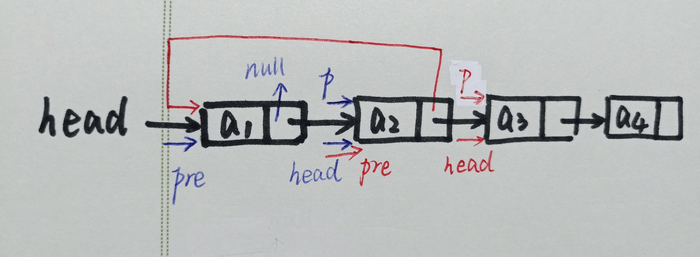 null
p p
head a1 a2 a3 a4
pre head pre head